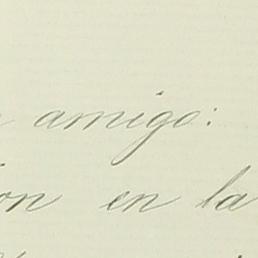 amigo:
ion en la